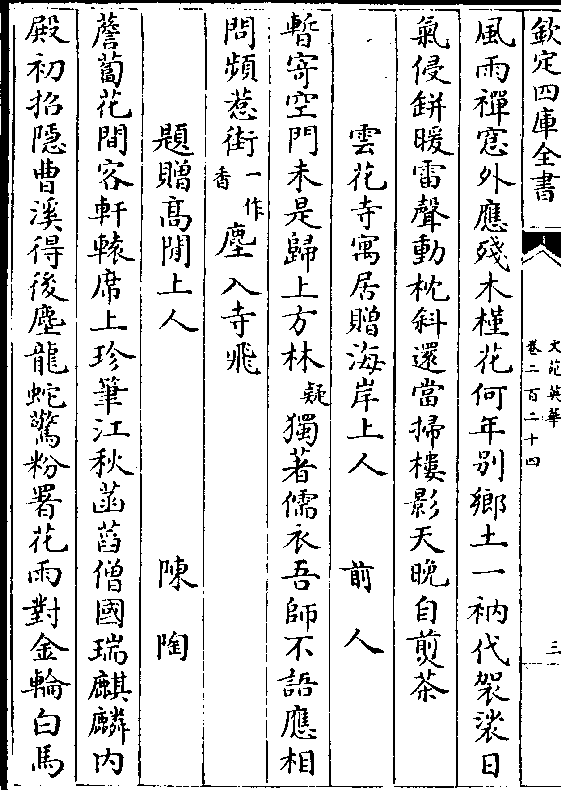 欽定四庫全書
文苑英華
卷二百二十四
三
風雨禪窓外應殘木槿花何年別鄉土一衲代袈裟日
氣侵缾暖雷聲動枕斜還當掃樓影天晚自煎茶
雲花寺寓居贈海岸上人　前人
暫寄空門未是歸上方林疑獨著儒衣吾師不語應相
問頻惹街一作香塵入寺飛
題贈髙閒上人　陳陶
薝蔔花間客軒轅席上珍筆江秋菡萏僧國瑞麒麟内
殿初招隠曹溪得後塵龍蛇驚粉署花雨對金輪白馬